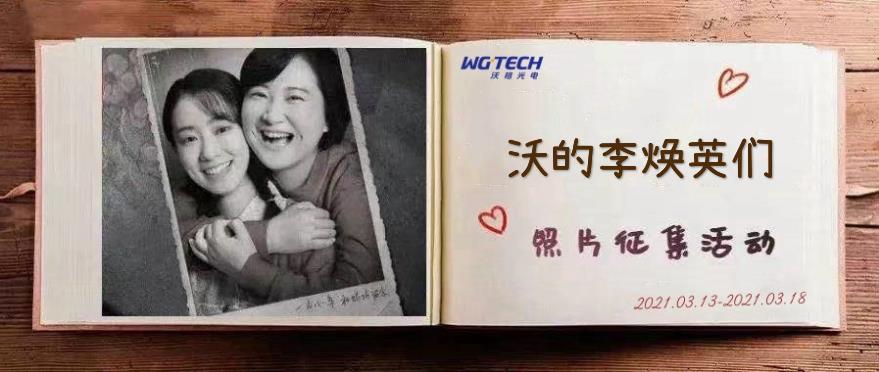 WG TECH
沃格光电
沃的李焕英们
照片征集活动
2021.03.13-2021.03.18